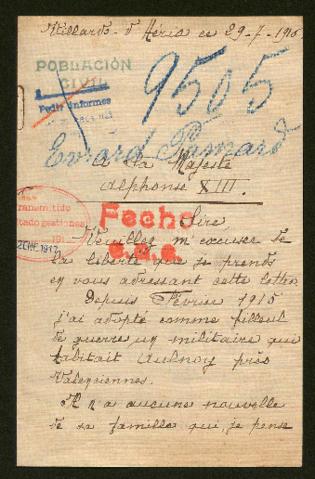 d'Aéria es 29-7-1916
POBLACIÓN
CIVIL
9505
Pedir Informes
Evrard Pamard
A Sa Majesté
Alphonse XIII.
Fecho
Sire
Veuillez m'excuser de
la liberté que je prends
en vous adressant cette lettre
Depuis Février 1915
j'ai adopté comme filleul
de guerre un militaire qui
habitait Aulnoy près
Valenciennes.
Il n'a aucune nouvelle
de sa famille qui je pense